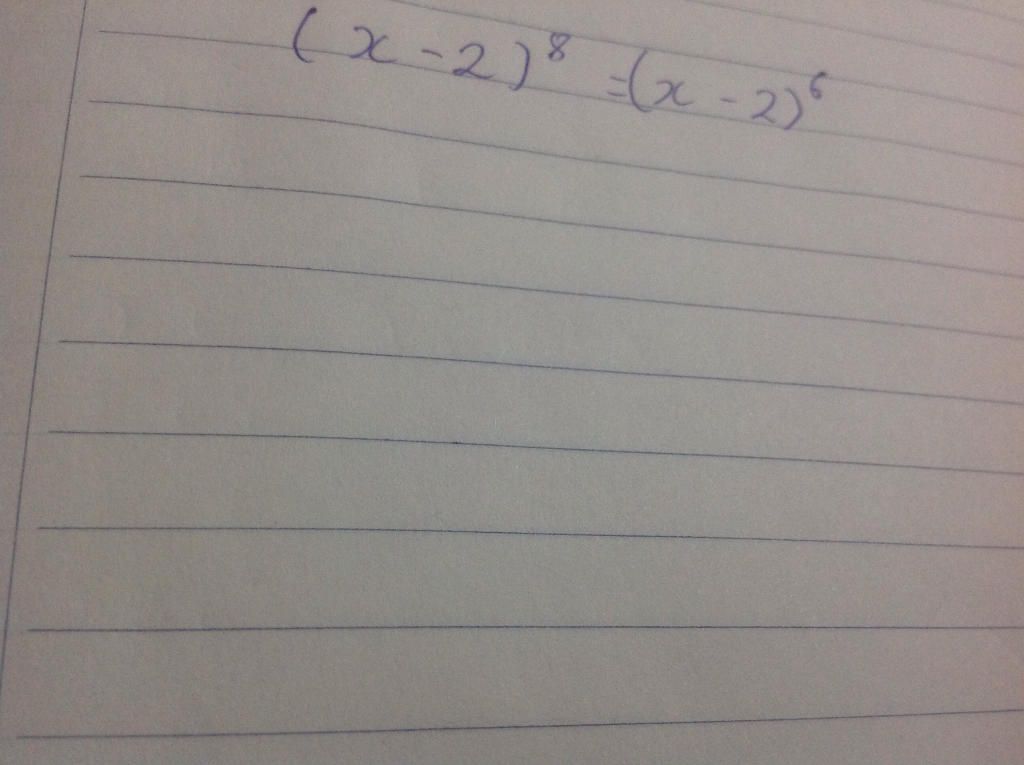 (x - 2)⁸ = (x - 2)⁶